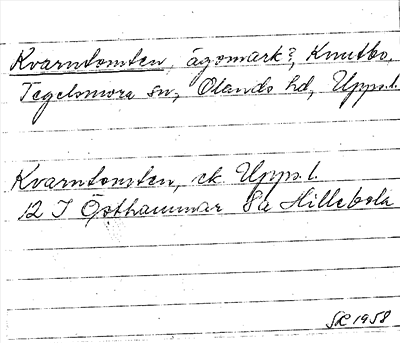 Kvarntomten, ägomark?, Knutbo,
Tegelsmora sn, Olands hd, Upps.l.
Kvarntomten, ek. Upps.l.
12 I Östhammar 8a Hillebola
SR 1958